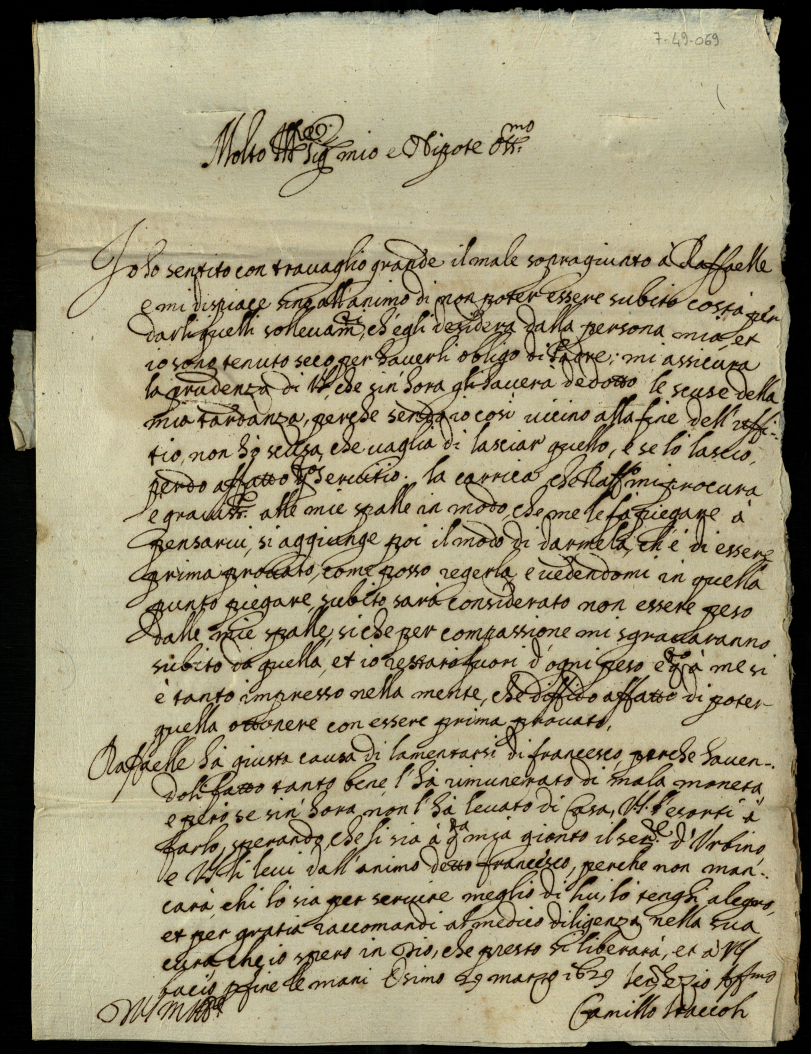 7-49-069
Molto Ill.re Sig. mio e Nipote Oss.mo
Io ho sentito con travaglio grande il male sopragiunto à Raffaelle
e mi dispiace sino all'animo di non poter essere subito costà per
darli quelli sollevam.ti, ch'egli desidera dalla persona mia, et
io sono tenuto seco per haverli obligo di Padre; mi assicura
la prudenza di VS, che sin'hora gli haverà dedotto le scuse della
mia tardanza, perche sendo io così vicino alla fine dell'uffi-
tio, non hò scusa, che vaglia di lasciar quello, e se lo lascio,
perdo affatto l'esercitio. la carrica, che Raff. mi procura
e graviss. alle mie spalle in modo, che me le fà piegare à
pensarvi, si aggiunge poi il modo di darmela, ch'è di essere
prima provato, come posso regerla, e vedendomi in quella
punto piegare, subito sarà considerato non essere peso
dalle mie spalle, si che per compassione mi sgravaranno
subito da quella, et io restarò fuori d'ogni peso e à me si
è tanto impresso nella mente, che diffido affatto di poter
quella ottenere con essere prima provato.
Raffaelle hà giusta causa di lamentarsi di francesco, perche haven-
doli fatto tanto bene l'hà rimunerato di mala moneta
e però se sin'hora non l'hà levato di Casa, VS l'esorti à
farlo, sperando, che li sia à q.sta mia gionto il ser.re d'Urbino
e VS li levi dall'animo detto francesco, perche non man-
carà, chi lo sia per servire meglio di lui, lo tenghi alegro,
et per gratia raccomandi al medico diligenza nella sua
cura, che io spero in Dio, che presto si liberarà, et à VS
bacio p fine le mani Osimo 29 marzo 1629
VS M Ill.re Aff.mo
Camillo